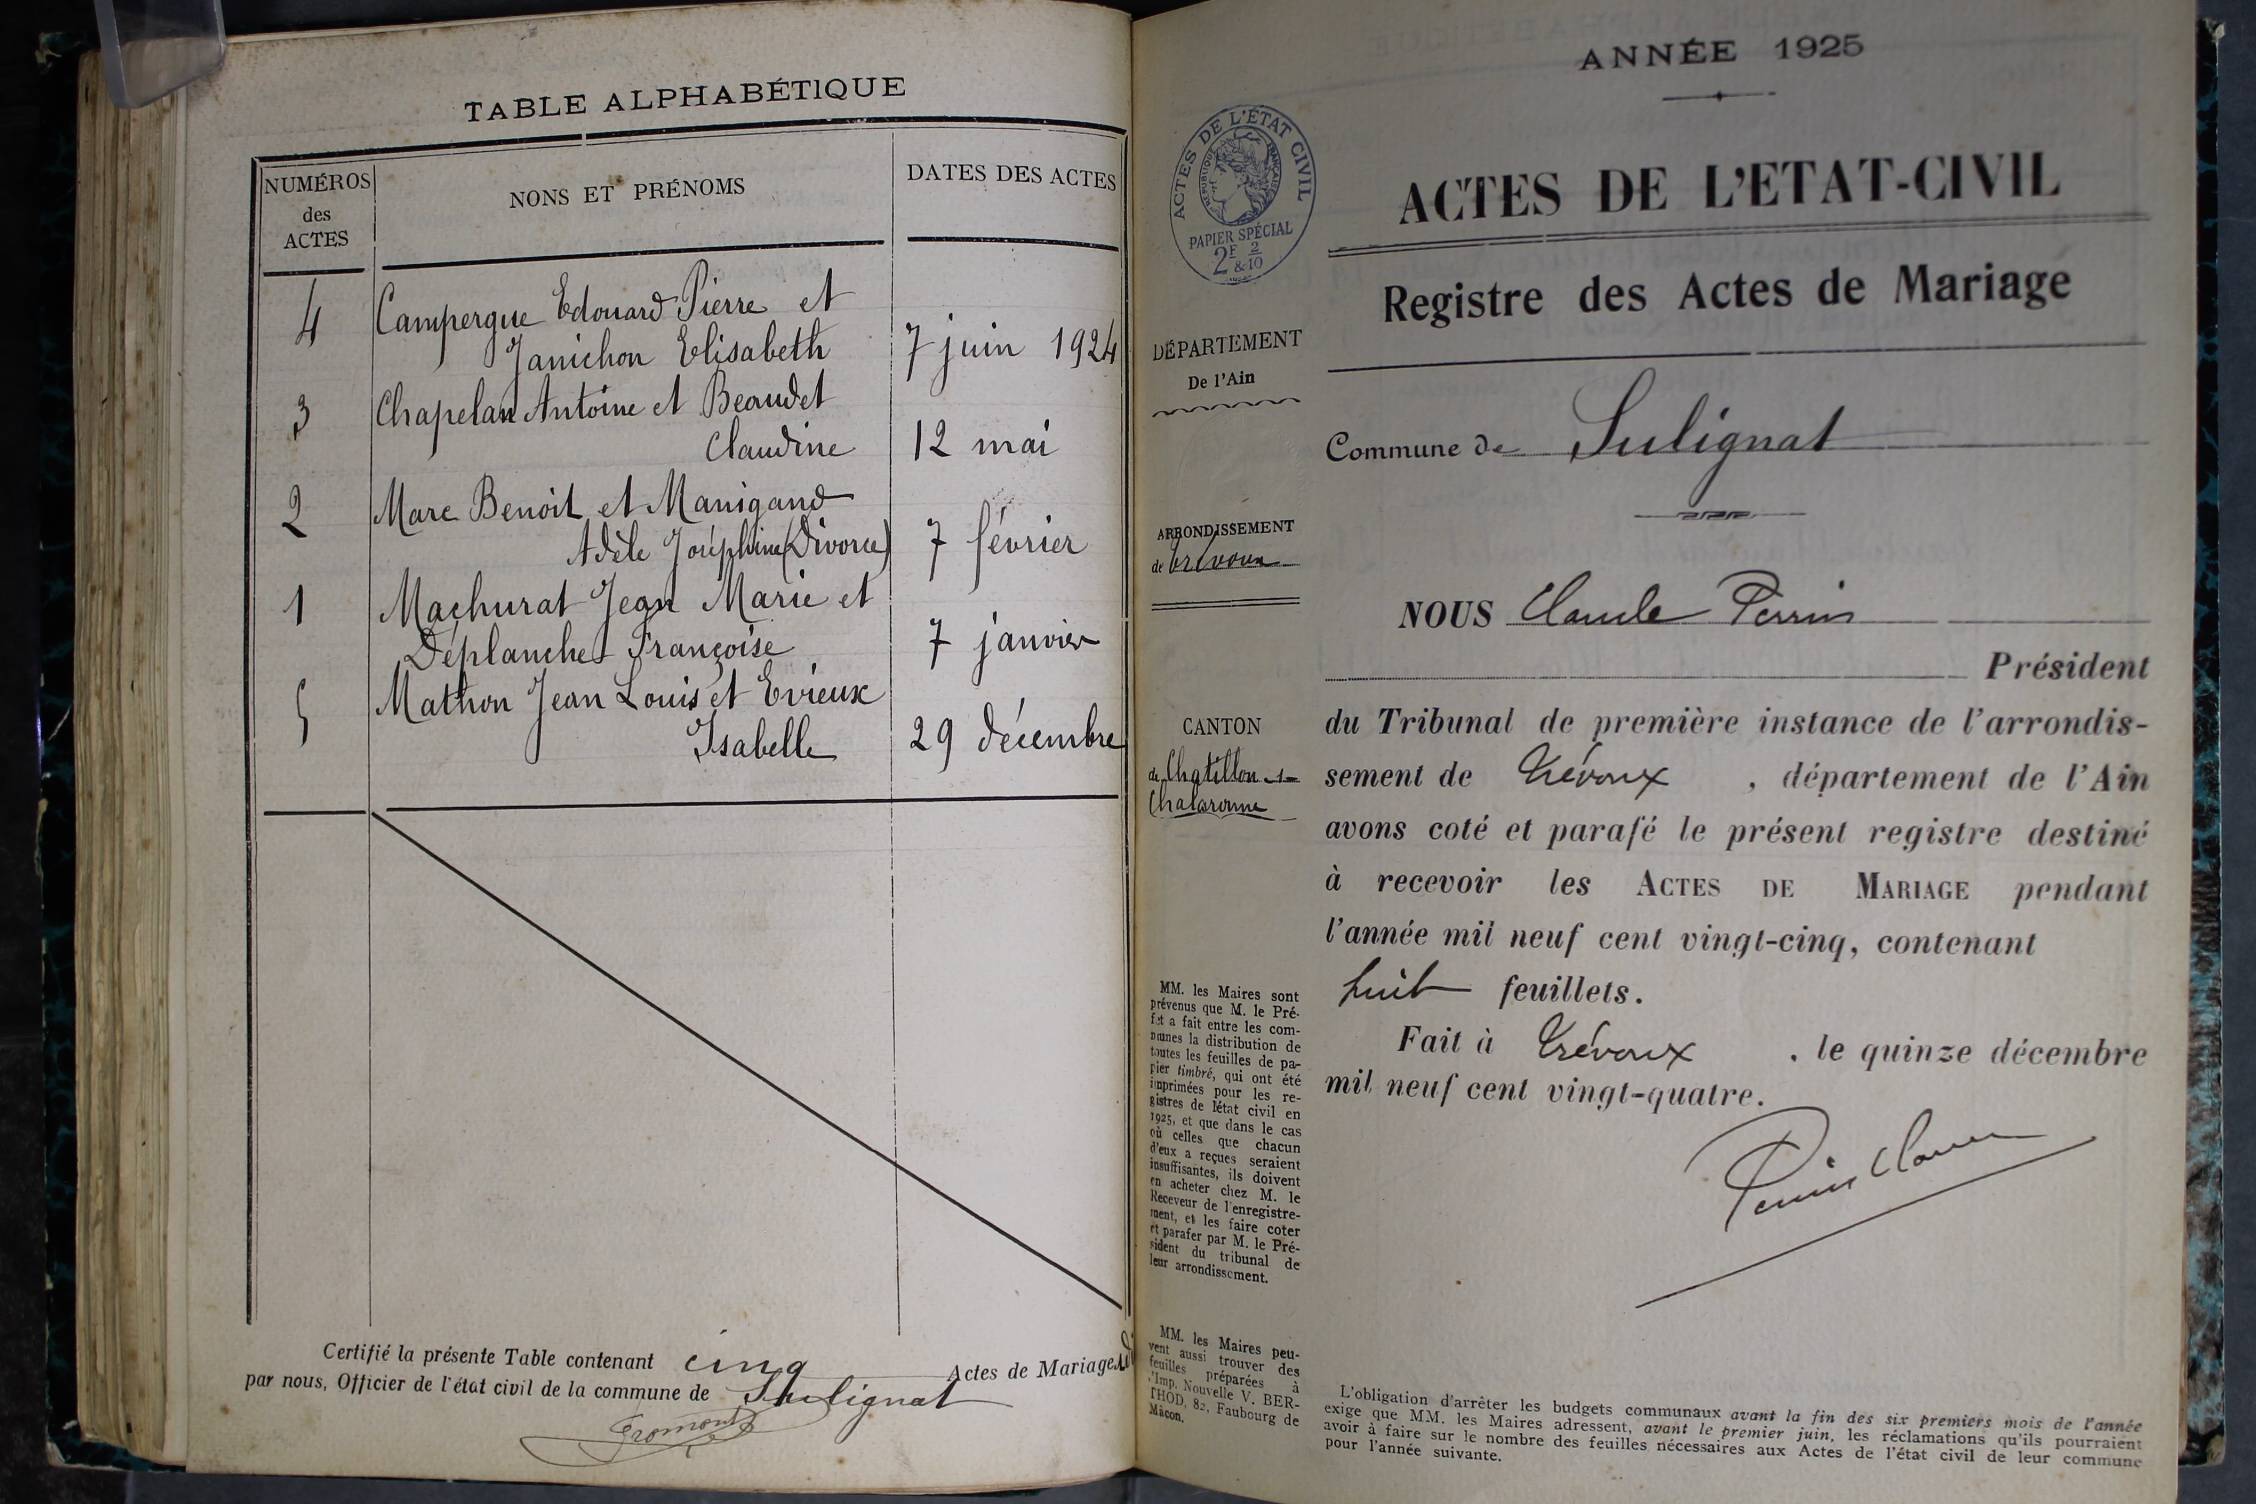 TABLE ALPHABÉTIQUE
NUMÉROS
des
ACTES
NONS ET PRÉNOMS
DATES DES ACTES
4 Campergue Edouard Pierre et
Janichon Elisabeth 7 juin 1924
3 Chapelan Antoine et Beaudet
Claudine 12 mai
2 Marc Benoit et Manigand
Adèle Joséphine (Divorce) 7 février
1 Machurat Jean Marie et
Déplanches Françoise 7 janvier
5 Mathon Jean Louis et Evieux
Isabelle 29 décembre
Certifié la présente Table contenant cinq Actes de Mariage
par nous, Officier de l'état civil de la commune de Sulignat
Fromont
ANNÉE 1925
ACTES DE L'ÉTAT CIVIL
RÉPUBLIQUE FRANÇAISE
PAPIER SPÉCIAL
2F & 2/10
DÉPARTEMENT
De l'Ain
ARRONDISSEMENT
de Trévoux
CANTON
de Chatillon-s-
Chalaronne
MM. les Maires sont
prévenus que M. le Pré-
fet a fait entre les com-
munes la distribution de
toutes les feuilles de pa-
pier timbré, qui ont été
imprimées pour les re-
gistres de l'état civil en
1925, et que dans le cas
où celles que chacun
d'eux a reçues seraient
insuffisantes, ils doivent
en acheter chez M. le
Receveur de l'enregistre-
ment, et les faire coter
et parafer par M. le Pré-
sident du tribunal de
leur arrondissement.
MM. les Maires peu-
vent aussi trouver des
feuilles préparées à
l'Imp. Nouvelle V. BER-
THOD, 82, Faubourg de
Mâcon.
ACTES DE L'ETAT-CIVIL
Registre des Actes de Mariage
Commune de Sulignat
NOUS Claude Perrin
Président
du Tribunal de première instance de l'arrondis-
sement de Trévoux , département de l'Ain
avons coté et parafé le présent registre destiné
à recevoir les ACTES DE MARIAGE pendant
l'année mil neuf cent vingt-cinq, contenant
huit feuillets.
Fait à Trévoux , le quinze décembre
mil neuf cent vingt-quatre.
Perrin Claude
L'obligation d'arrêter les budgets communaux avant la fin des six premiers mois de l'année
exige que MM. les Maires adressent, avant le premier juin, les réclamations qu'ils pourraient
avoir à faire sur le nombre des feuilles nécessaires aux Actes de l'état civil de leur commune
pour l'année suivante.